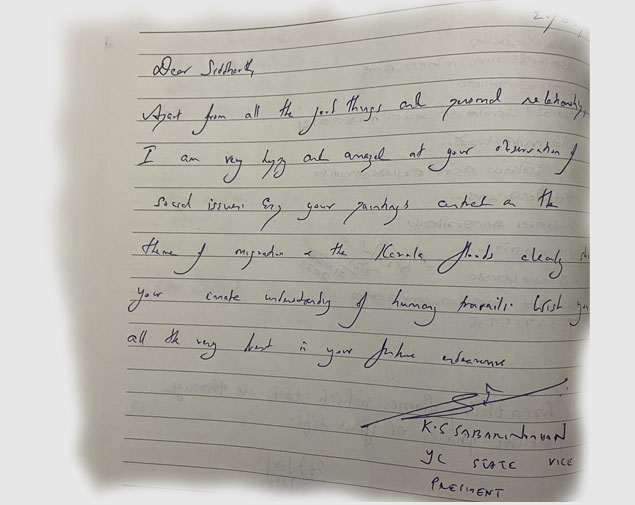 Dear Siddharth,
Apart from all the good things and personal relationship,
I am very happy and amazed at your observation of
social issues. Eg your paintings centred on the
theme of migration & the Kerala floods clearly
your innate understanding of human travails. Wish you
all the very best in your future endeavours
K.S SABARINATHAN
YC STATE VICE
PRESIDENT